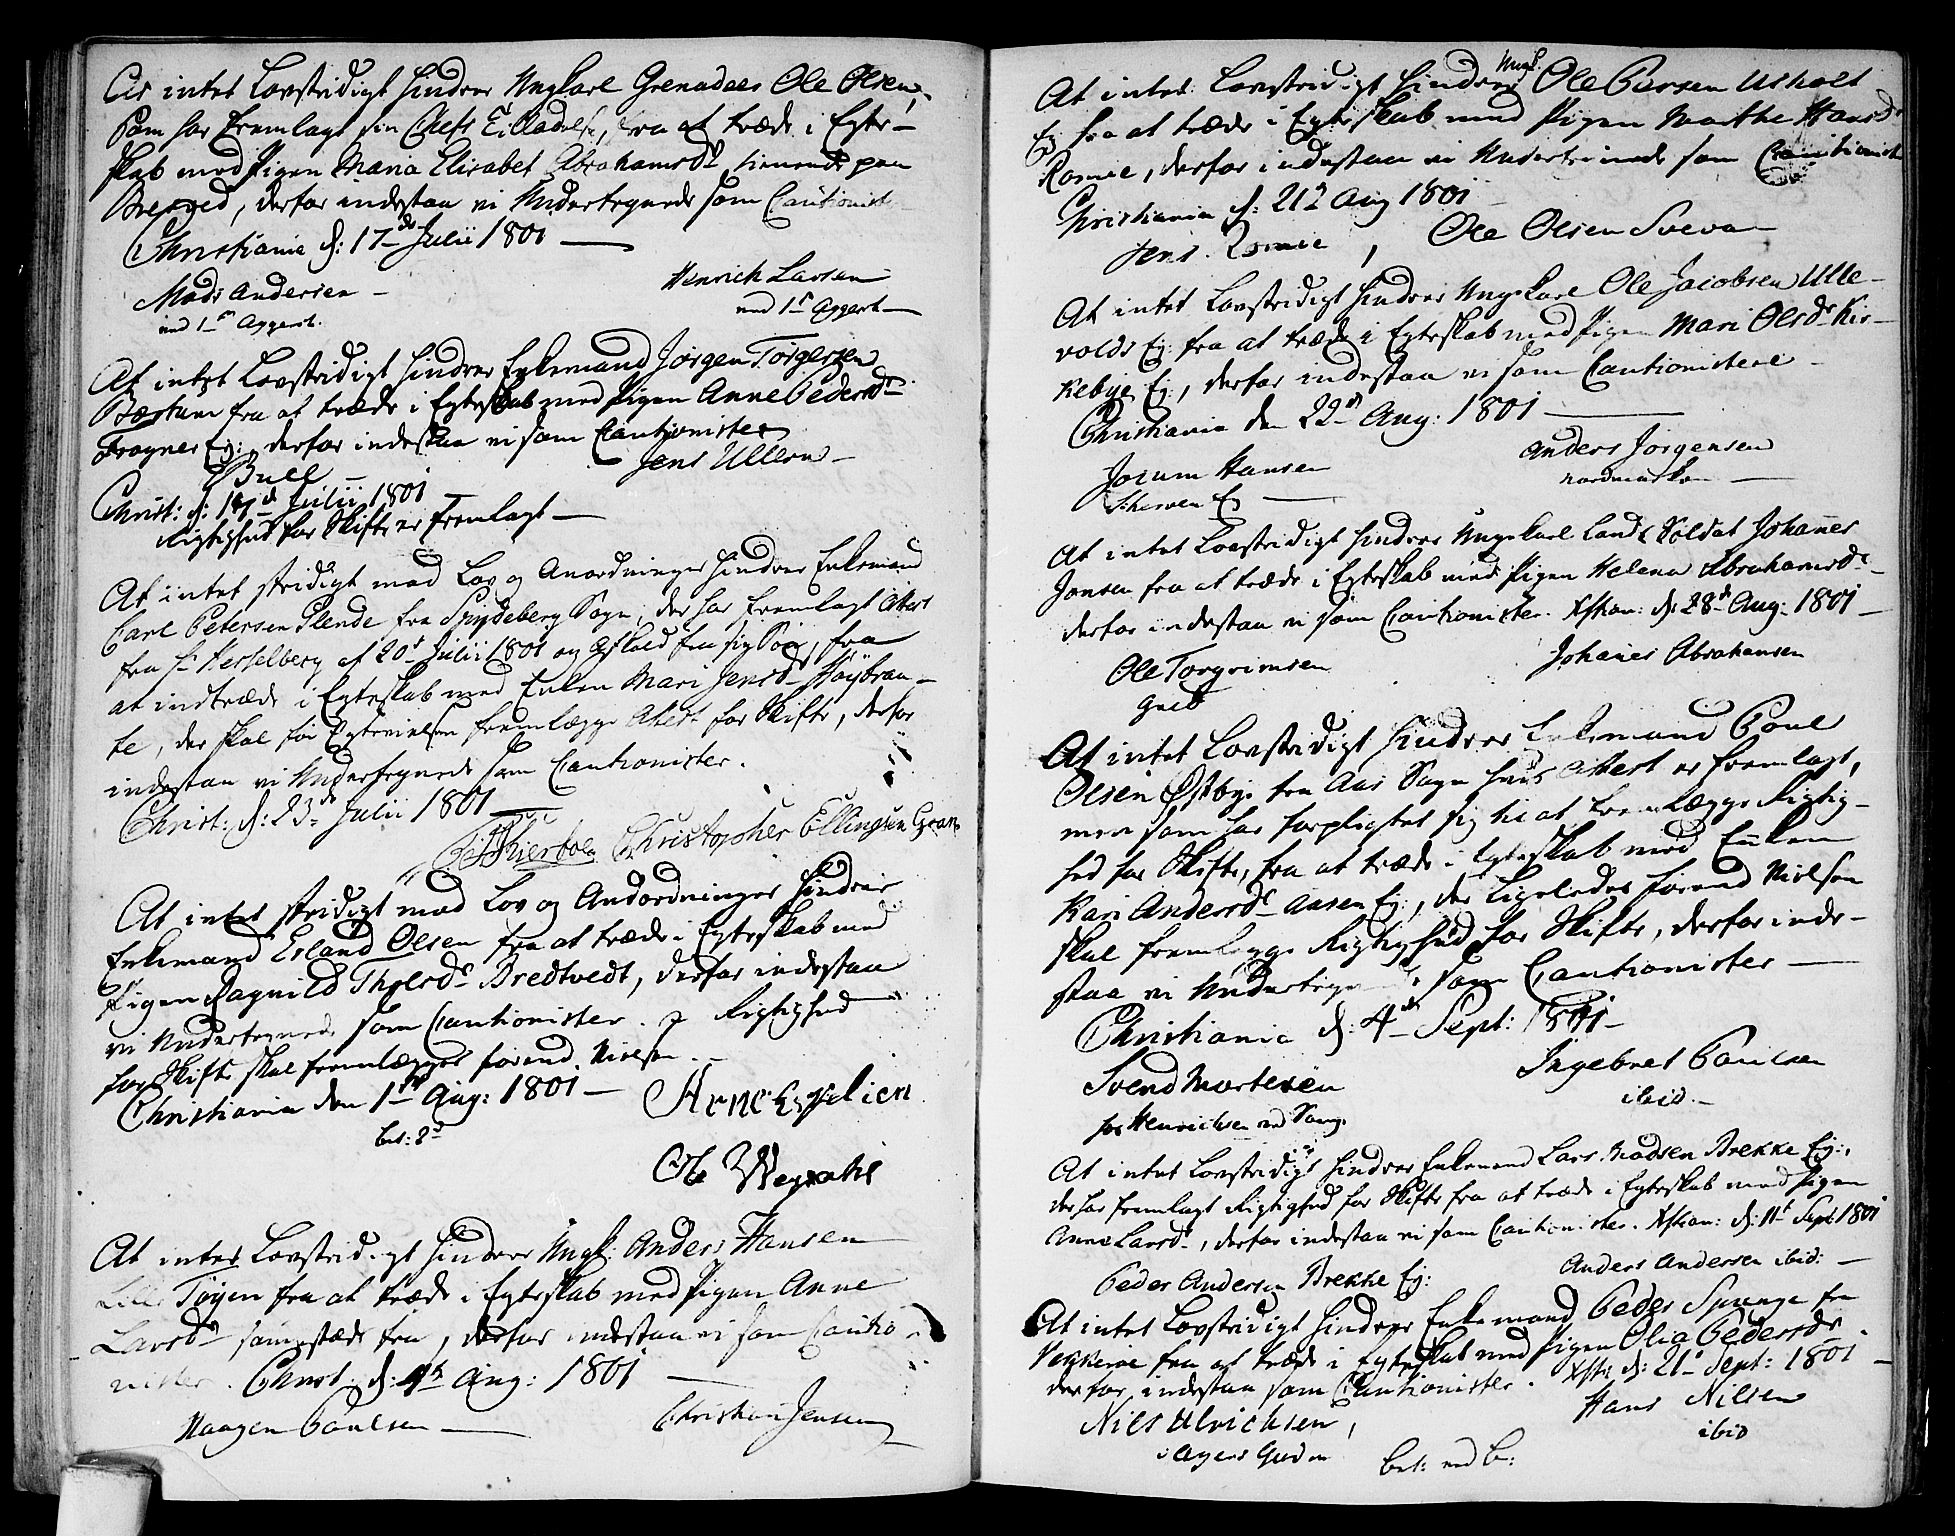 At intet Lovstridigt hindrer Ungkarl Grenadeer Ole Olsen,
som har fremlagt sin Chefs Tilladelse, fra at træde i Egte-
skab med Pigen Maria Elisabet Abrahamsdr tienende paa
derfor indestaa vi Undertegnede som Cautionister
Christiania d: 17de Julii 1801
Mads Andersen Henrich Larsen
med Aggert. med Aggert
At intet Lovstridigt hindrer Enkemand Jörgen Törgersen
Bærhum fra at træde i Egteskab med Pigen Anne Pedersdr
Frogner Ej:, derfor indestaa vi som Cautionister
Bull Jens Ullern
Christ: d: Julii 1801
Rigtighed for Skifte er fremlagt
At intet stridigt mod Lov og Anordninger hindrer Enkemand
Carl Petersen Plende fra Spydeberg Sogn, der har fremlagt Attest
fra Hr Hesselberg af 20de Julii 1801 og Afsked fra sig fra
at indtræde i Egteskab med Enken Mari Jensdr Höybraa-
te, der skal før Egtevielsen fremlægge Attest for Skifte, derfor
indestaa vi Undertegnede som Cautionister.
Christ: d: 23de Julii 1801
Christopher Ellingsen Gran
At intet stridigt mod Lov og Andordninger hindrer
Enkemand Erland Olsen fra at træde i Egteskab med
Pigen Ragnild Bredtvedt, derfor indestaa
vi Undertegnede som Cautionister. Rigtighed
for Skifte skal fremlægges forend Vielsen.
Christiania den 1ste Aug: 1801
Arne
Ole
At intet Lovstridigt hindrer Ungk: Anders Hansen
Lille Töyen fra at træde i Egteskab med Pigen Anne
Larsdr sammestæds fra, derfor indestaa vi som Cautio-
nister. Christ. d: Aug: 1801
Haagen Paulsen Christian Jensen
Ungk.
At intet Lovstridigt hindrer Ole Larsen Usholt
Ej fra at træde i Egteskab med Pigen Marthe Hansdr
derfor indestaa vi Undertegnede som Cautionister
Christiania d: 21de Aug 1801
Jens Ole Olsen
At intet Lovstridigt hindrer Ungkarl Ole Jacobsen Ulle-
volds Ej: fra at træde i Egteskab med Pigen Mari Olsdr Kir-
kebye Ej:, derfor indestaa vi som Cautionistere
Christiania den 22de Aug: 1801
Joram Hansen Anders Jorgensen
Ej nordmarken
At intet Lovstridigt hindrer Ungkarl Land Soldat Johannes
Jonsen fra at træde i Egteskab med Pigen Helena Abrahamsdr
derfor indestaa vi som Cautionister. Xstian: d: 28de Aug: 1801
Ole Torgrimsen Johanes Abrahamsen
At intet Lovstridigt hindrer Enkemand Poul
Olsen Østbye fra Aas Sogn hvis Attest er fremlagt,
men som har forpligtet sig til at fremlægge Rigtig-
hed for Skifte, fra at træde i Egteskab med Enken
Kari Andersdr Aasen Ej:, der Ligeledes forend Vielsen
skal fremlægge Rigtighed for Skifte, derfor inde-
staa vi Undertegnede som Cautionister
Christiania d: 4de Sept: 1801
Svend Mortesen Ingebret Paulsen
hos Henrichsen ved ibid.
At intet Lovstridigt hindrer Enkemand Lars Madsen Brekke Ej:,
der har fremlagt Rigtighed for Skifte fra at træde i Egteskab med Pigen
Anne Larsdr, derfor indestaa vi som Cautionister. Xstian: d: 11te Sept 1801
Peder Andersen Brekke Ej: Anders Andersen ibid:
At intet Lovstridigt hindrer Enkemand Peder fra
Vekkerøe fra at træde i Egteskab med Pigen Olia Pedersdr
derfor indestaa som Cautionister. Xsti: d: 21de Sept: 1801
Nils Ulrichsen, Hans Nilsen
ibid